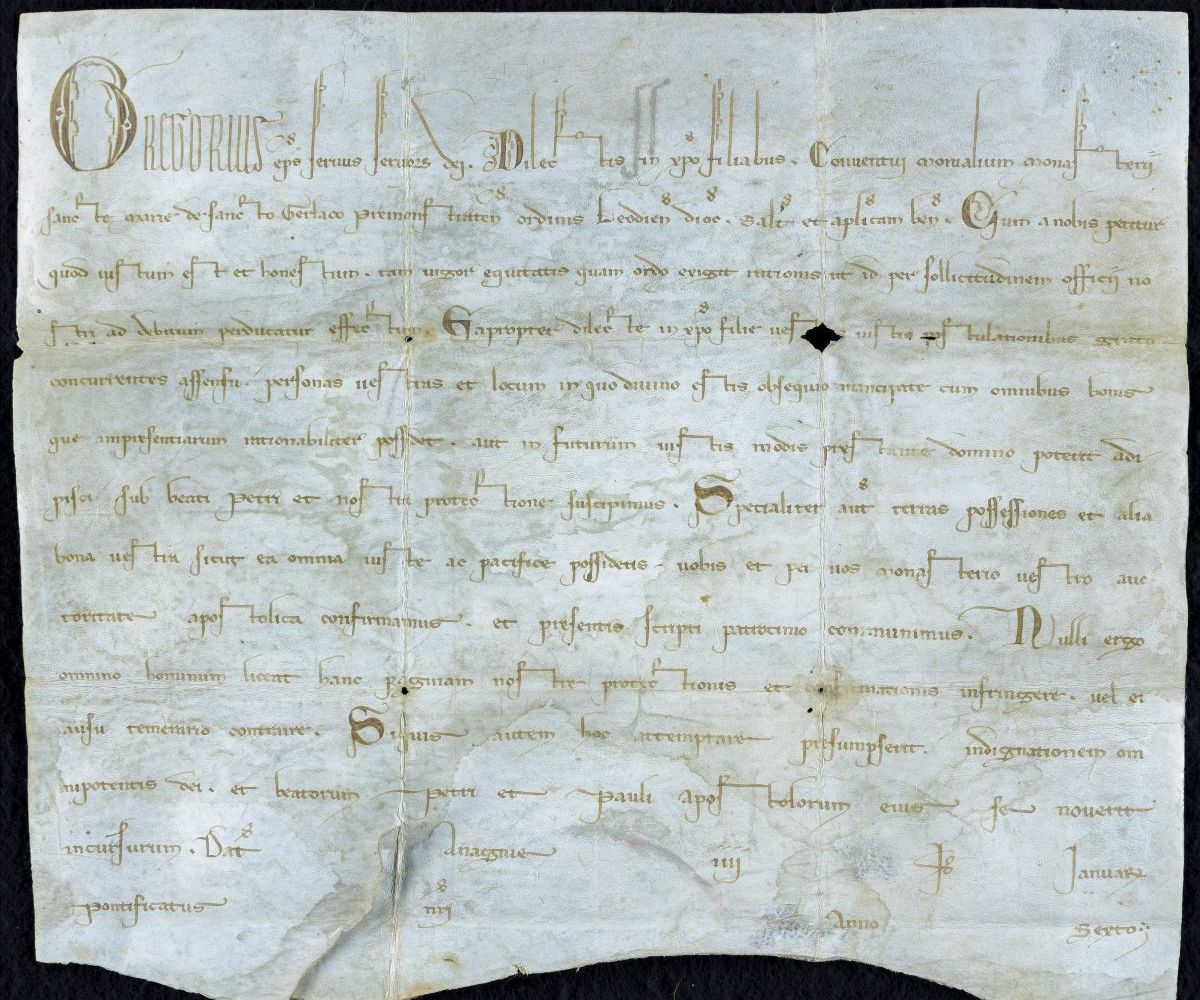 GREGORIUS eps servus servorꝝ dei. Dilectis in xp̄o filiabus. Conventui monialium monasterii
sancte marie de sancto Gerlaco premonstraten̄ ordinis Leodien̄ dioc̄. Salt̄ et aplicam ben̄. Cum a nobis petitur
quod iustum est et honestum. tam vigor equitatis quam ordo exigit rationis ut id per sollicitudinem officii no
stri ad debitum perducatur effectum. Eapropter dilecte in xp̄o filie iustis postulationibus grato
concurrentes assensu. personas vestras et locum in quo divino estis obsequio mancipate cum omnibus bonis
que impresentiarum rationabiliter possidet. aut in futurum iustis modis prestante domino poterit adi
pisci sub beati Petri et nostra protectione suscipimus. Specialiter aut̄ terras possessiones et alia
bona vestra sicut ea omnia iuste ac pacifice possidetis. vobis et per vos monasterio vestro auc
toritate apostolica confirmamus. et presentis scripti patrocinio communimus. Nulli ergo
omnino hominum liceat hanc paginam nostre protectionis et confirmationis infringere. vel ei
ausu temerario contraire. Siquis autem hoc attemptare presumpserit. indignationem om
nipotentis dei. et beatorum Petri et Pauli apostolorum eius se noverit
incursurum. Dat̄ Anagnie iiii kl̄ Januarꝝ
Pontificatus nr̄i Anno Sexto.